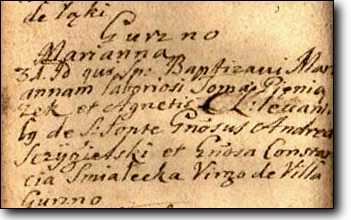 de łąki
Gurzno
Marianna
31 Id qui spr Baptizavi Mari
annam laboriosi Toma Pienia
zek et Agnetis CL Levan
tes de S. Fonte Gnosus Andrea
Scrygielski et Gnosa Constan
cia Smiałecka Virgo de Villa
Gurzno